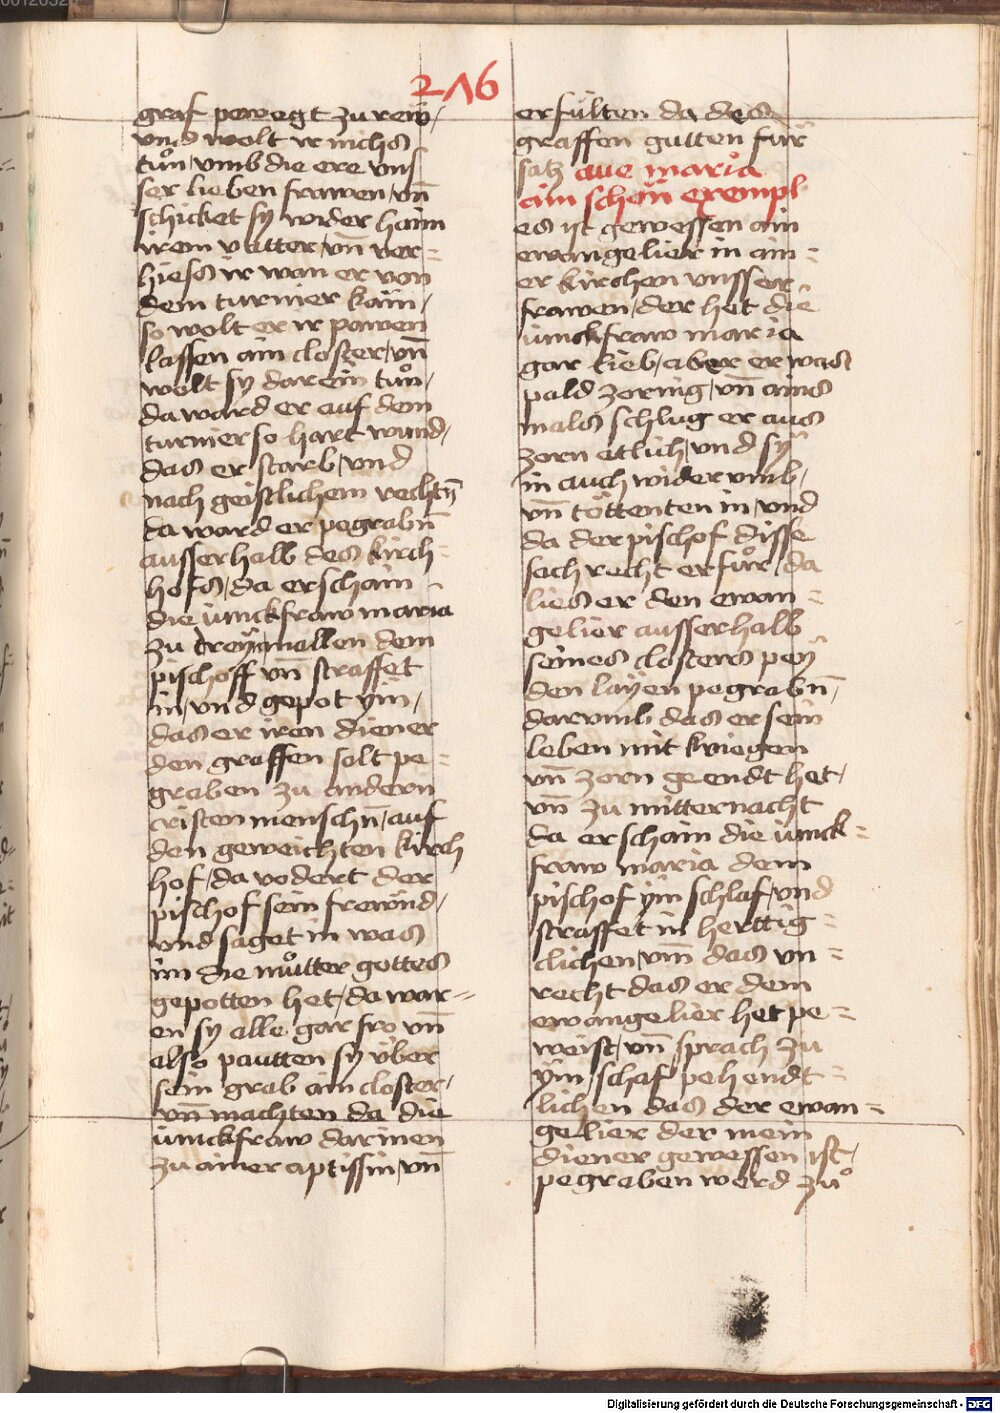 216
graf pewegt zu rew /
vnd wolt ir nichs
tůn / vmb die ere vns
ser lieben frawen / vn̄
schicket sy wider haim
irem vatter / vn̄ ver=
hiess ir wan er von
dem turnier käm /
so wolt er ir pawen
lassen ain closter / vn̄
wolt sy darein tůn /
da ward er auf dem
turnier so hart wund /
das er starb / vnd
nach geistlichem rechtn̄
da ward er pegrabn̄
ausserhalb des kirch=
hofs / da erschain
die iunckfraw maria
zu dreÿmallen dem
pischoff vn̄ straffet
in / vnd gepot ÿm /
das er iren diener
den graffen solt pe=
graben zu andern
cristen menschn̄ / auf
den geweichten kirch
hof / da vodert der
pischof sein frewnd /
vnd saget in was
im die můtter gottes
gepotten het / da war=
en sy alle gar fro vn̄
also pautten sy über
sein grab ain closter /
vn̄ machten da die
iunckfraw darinen
zu ainer aptissin / vn̄
erfulten da des
graffen gutten für
satz aue maria
ain schön exempl
es ist gewessen ain
ewangelier in ain=
er kirchen vnsser
frawen / der het die
iunckfraw maria
gar lieb / aber er was
pald zornig / vn̄ ains
mals schlug er aus
zorn etlich / vnd sÿ
in auch wider vmb /
vn̄ töttenten in / vnd
da der pischof disse
sach recht erfůr / da
lies er den ewan=
gelier ausserhalb
seines closters peÿ
den laÿen pegrabn̄ /
darvmb das er sein
leben mit kriegen
vn̄ zorn geendt het /
vn̄ zu mitternacht
da erschain die iunck=
fraw maria dem
pischof ÿm schlaf / vnd
straffet in herttig=
clichen / vm̄ das vn=
recht das er dem
ewangelier het pe=
weist / vn̄ sprach zu
ÿm / schaf pehendt=
lichen das der ewan=
gelier der mein
diener gewessen ist /
pegraben werd zů
Digitalisierung gefördert durch die Deutsche Forschungsgemeinschaft - DFG